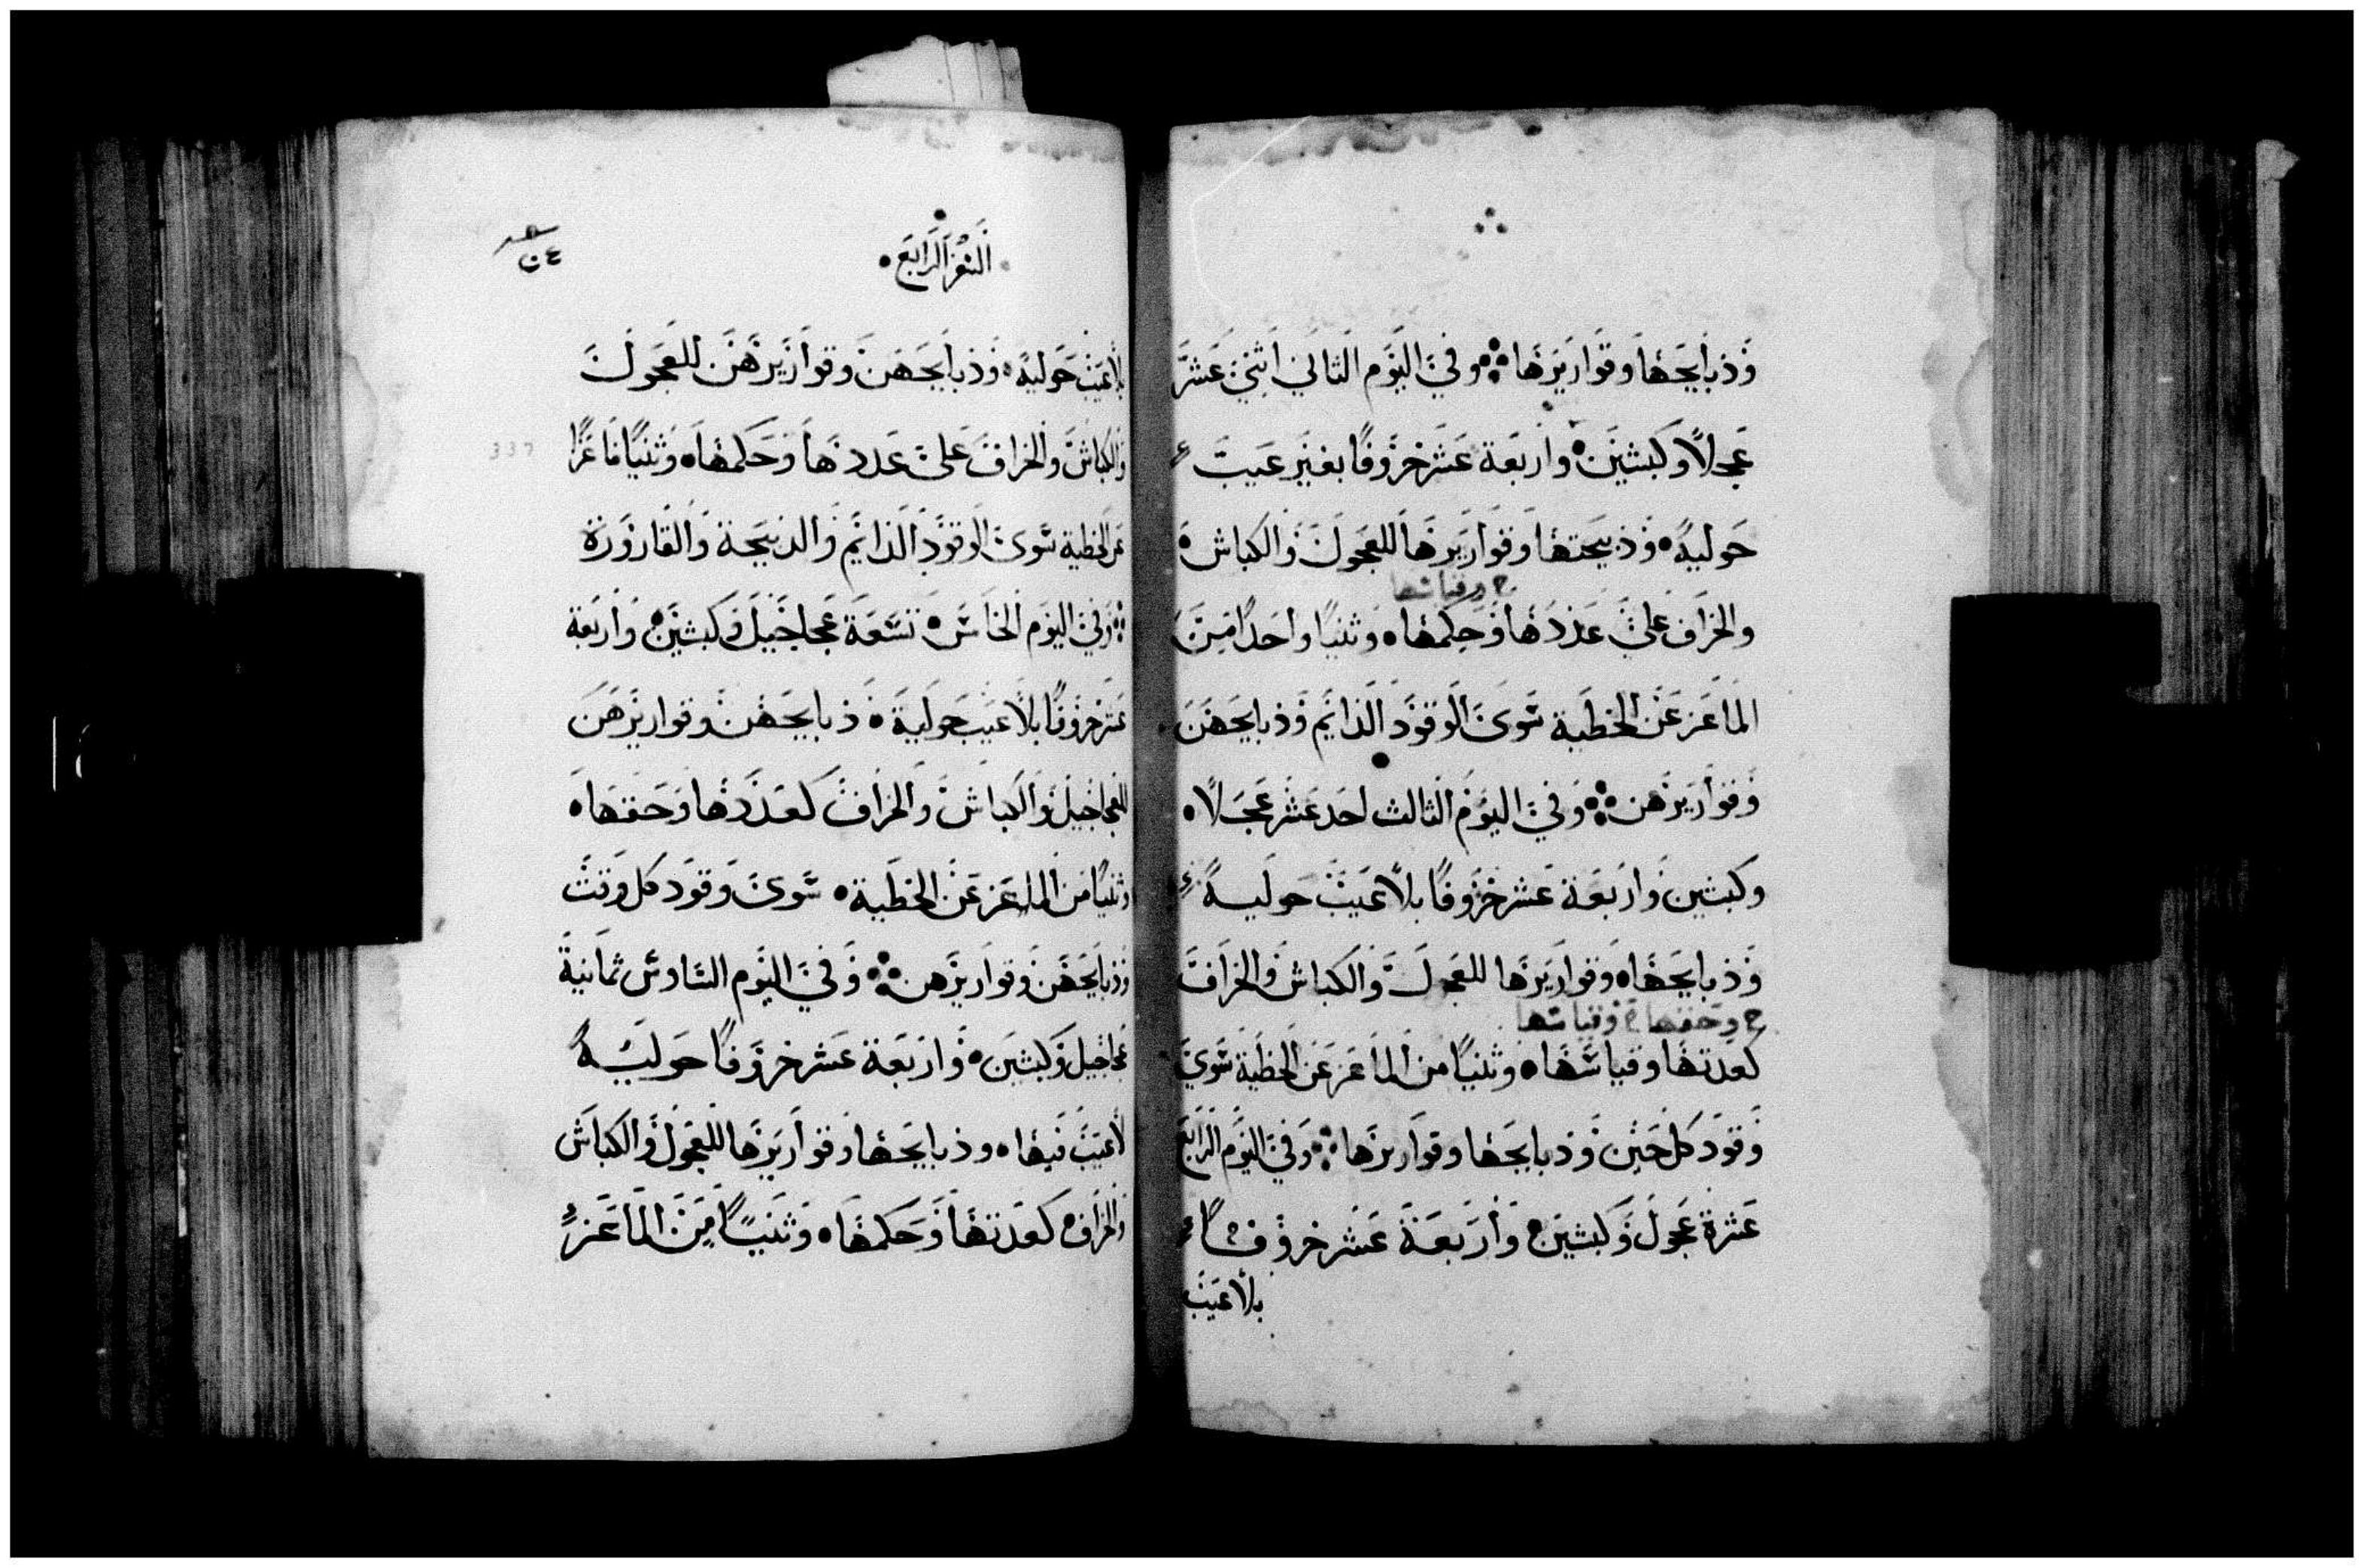 وذبايحها وقواريرها ⁘ وفي اليوم الثاني اثني عشر
عجلاً وكبشين • واربعة عشر خروفًا بغير عيب
حولية • وذبيحتها وقواريرها للعجول والكباش
ح وقياسها
والخراف علي عددها وحكمها • وثنيًا واحدًا من
الماعز عن الخطية سوي الوقود الدايم وذبايحهن
وقواريرهن ⁘ وفي اليوم الثالث احد عشر عجلاً •
وكبشين واربعة عشر خروفًا بلا عيب حولية
وذبايحها • وقواريرها للعجول والكباش والخراف
ح وحقها ح وقياسها
كعدتها وقياسها • وثنيًا من الماعز عن الخطية سوي
وقود كل حين وذبايحها وقواريرها ⁘ وفي اليوم الرابع
عشرة عجول وكبشين وأربعة عشر خروفًا
بلا عيب
السفر الرابع
بلا عيب حولية • وذبايحهن وقواريرهن للعجول
والكباش والخراف علي عددها وحكمها • وثنيًا ماعزًا
عن الخطية سوي الوقود الدايم والذبيحة والقارورة
⁘ وفي اليوم الخامس • تسعة عجاجيل وكبشين وأربعة
عشر خروفًا بلا عيب حولية • ذبايحهن وقواريرهن
للعجاجيل والكباش والخراف كعددها وحقها •
وثنيًا من الماعز عن الخطية • سوي وقود كل وقت
وذبايحهن وقواريرهن ⁘ وفي اليوم السادس ثمانية
عجاجيل وكبشين • واربعة عشر خروفًا حولية
لا عيب فيها • وذبايحها وقواريرها للعجول والكباش
والخراف كعدتها وحكمها • وثنيًا من الماعز